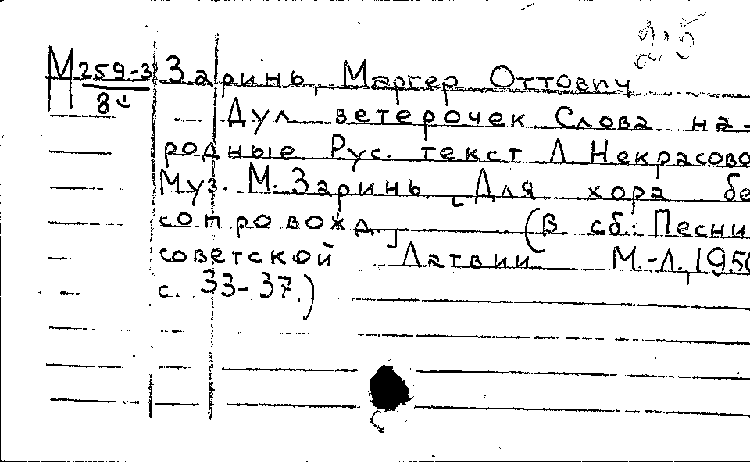 2.5
М 259-3 Заринь, Маргер Оттович
8ч Дул ветерочек Слова на-
родные Рус. текст Л Некрасово
Муз. М. Заринь [Для хора бе
сопровожд.] (В сб.: Песни
советской Латвии М.-Л., 1950
с. 33-37.)